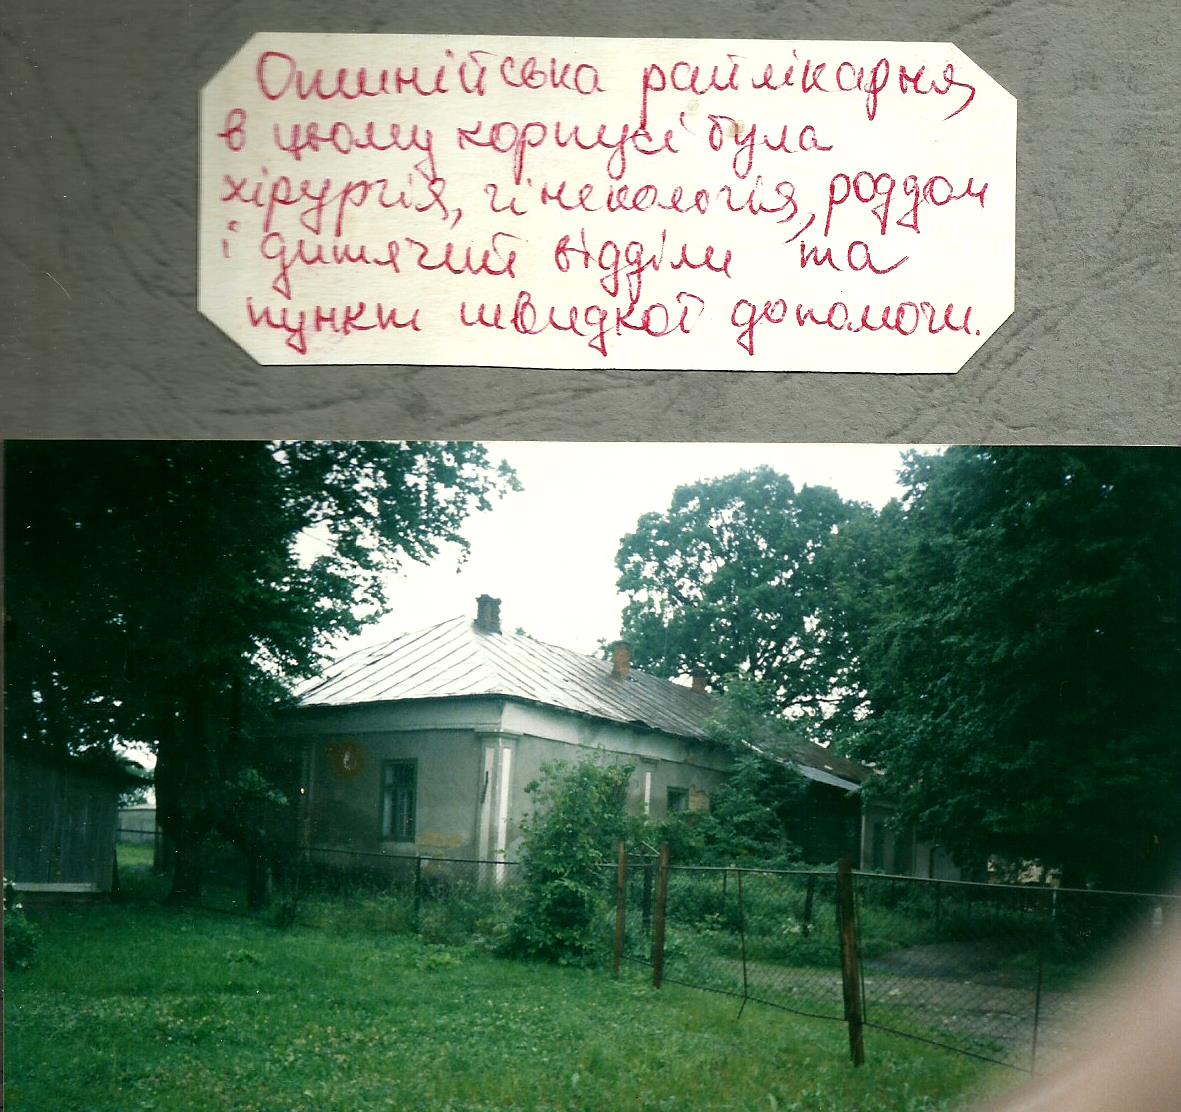 Отинійська райлікарня,
в цьому корпусі була
хірургія, гінекологія, роддом
і дитячий відділи та
пункт швидкої допомоги.